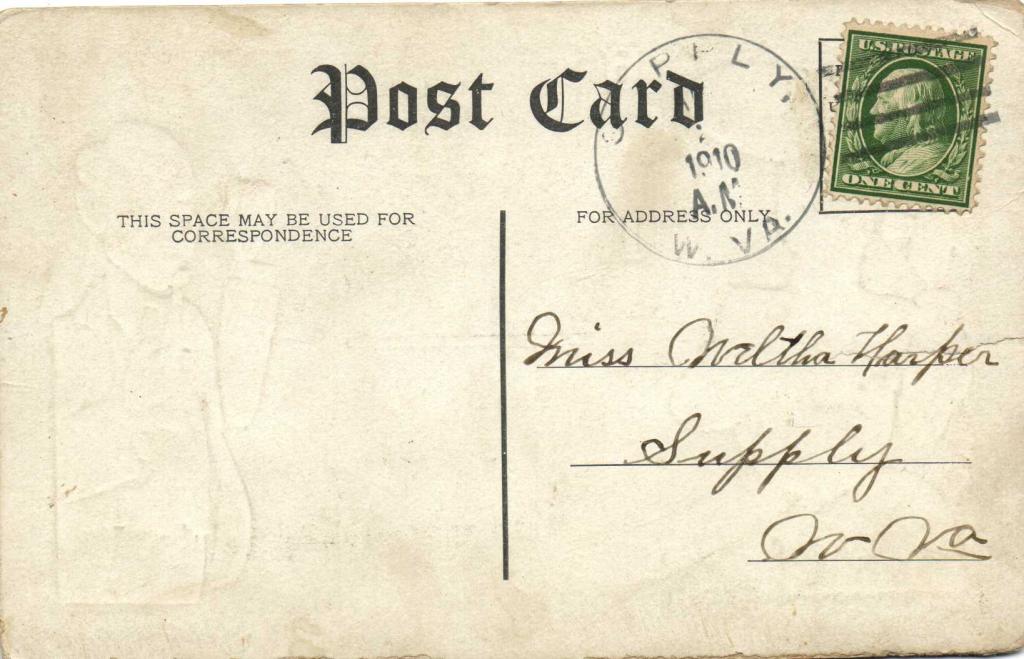 Post Card
THIS SPACE MAY BE USED FOR
CORRESPONDENCE
FOR ADDRESS ONLY
SUPPLY.
1910
A.M
W. VA.
U.S. POSTAGE
ONE CENT
Miss Weltha Harper
Supply
W Va